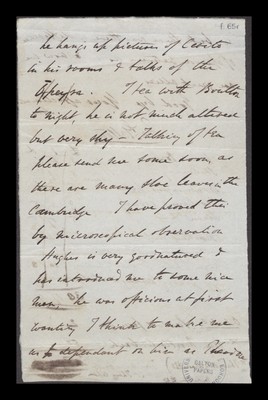 f. 85r
he hangs up pictures of Cerito
in his rooms & talks of the
Tea with Boulton
to night, he is not much altered
but very shy — Talking of tea
please send me some soon, as
there are many sloe leaves in the
Cambridge I have proved this
by microscopical observation
Hughes is very goodnatured &
has introduced me to some nice
men — he was officious at first
wanting I think to make me
as dependant on him as